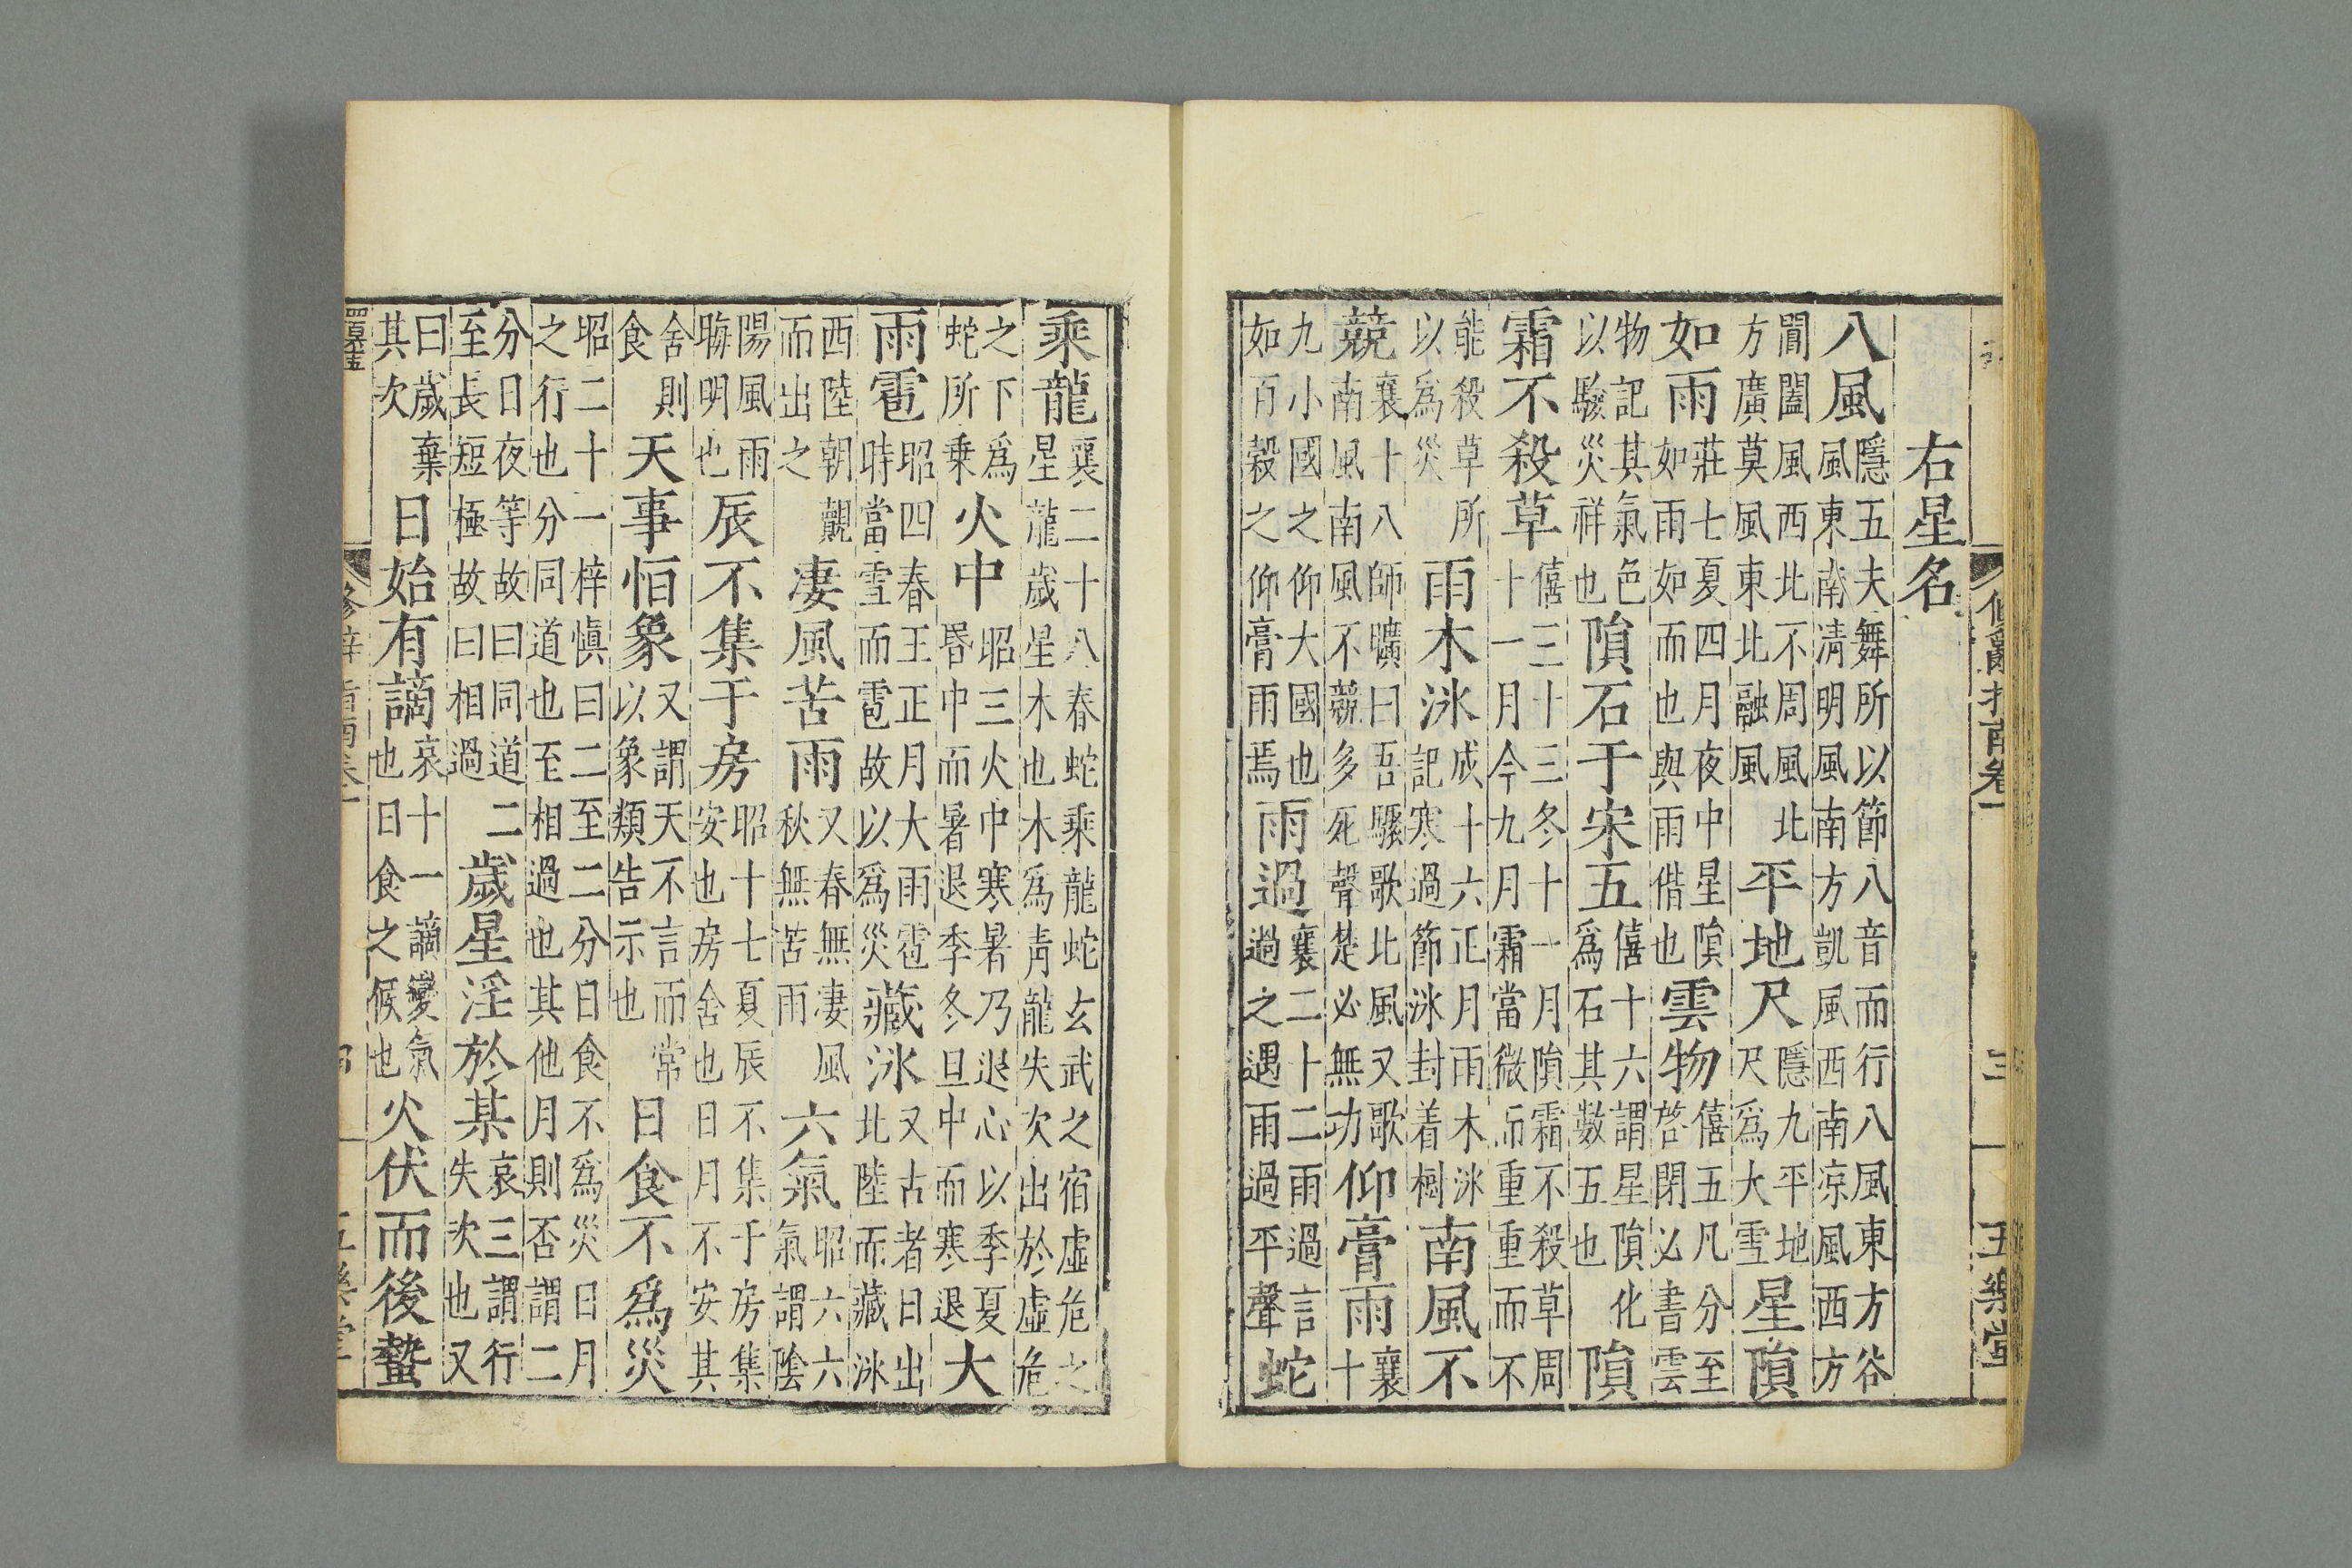 修辭指南卷一 三 五樂堂
右星名
八風隱五夫舞所以節八音而行八風東方谷風東南清明風南方凱風西南凉風西方
閶闔風西北不周風北方廣莫風東北融風平地尺隱九平地尺爲大雪星隕
如雨莊七夏四月夜中星隕如雨如而也與雨偕也雲物僖五凡分至啓閉必書雲
物記其氣色以驗災祥也隕石于宋五僖十六謂星隕化爲石其數五也隕
霜不殺草僖三十三冬十一月隕霜不殺草周十一月今九月霜當微而重重而不
能殺草所以爲災雨木冰成十六正月雨木冰記寒過節冰封着樹南風不
競襄十八師曠曰吾驟歌北風又歌南風南風不競多死聲楚必無功仰膏雨襄十
九小國之仰大國也如百穀之仰膏雨焉雨過襄二十二雨過言過之遇雨過平聲蛇
乘龍襄二十八春蛇乘龍蛇玄武之宿虛危之星龍歲星木也木爲青龍失次出於虛危
之下爲蛇所乘火中昭三火中寒暑乃退心以季夏昏中而暑退季冬旦中而寒退大
雨雹昭四春王正月大雨雹時當雪而雹故以爲災藏冰又古者日出北陸而藏冰
西陸朝覿而出之凄風苦雨又春無凄風秋無苦雨六氣昭六六氣謂陰
陽風雨晦明也辰不集于房昭十七夏辰不集于房集安也房舍也日月不安其
舍則食天事恒象又謂天不言而常以象類告示也日食不爲災
昭二十一梓慎曰二至二分日食不爲災日月之行也分同道也至相過也其他月則否謂二
分日夜等故曰同道二至長短極故曰相過歲星淫於某哀三謂行失次也又
曰歲棄其次日始有謫哀十一謫變氣也日食之候也火伏而後蟄